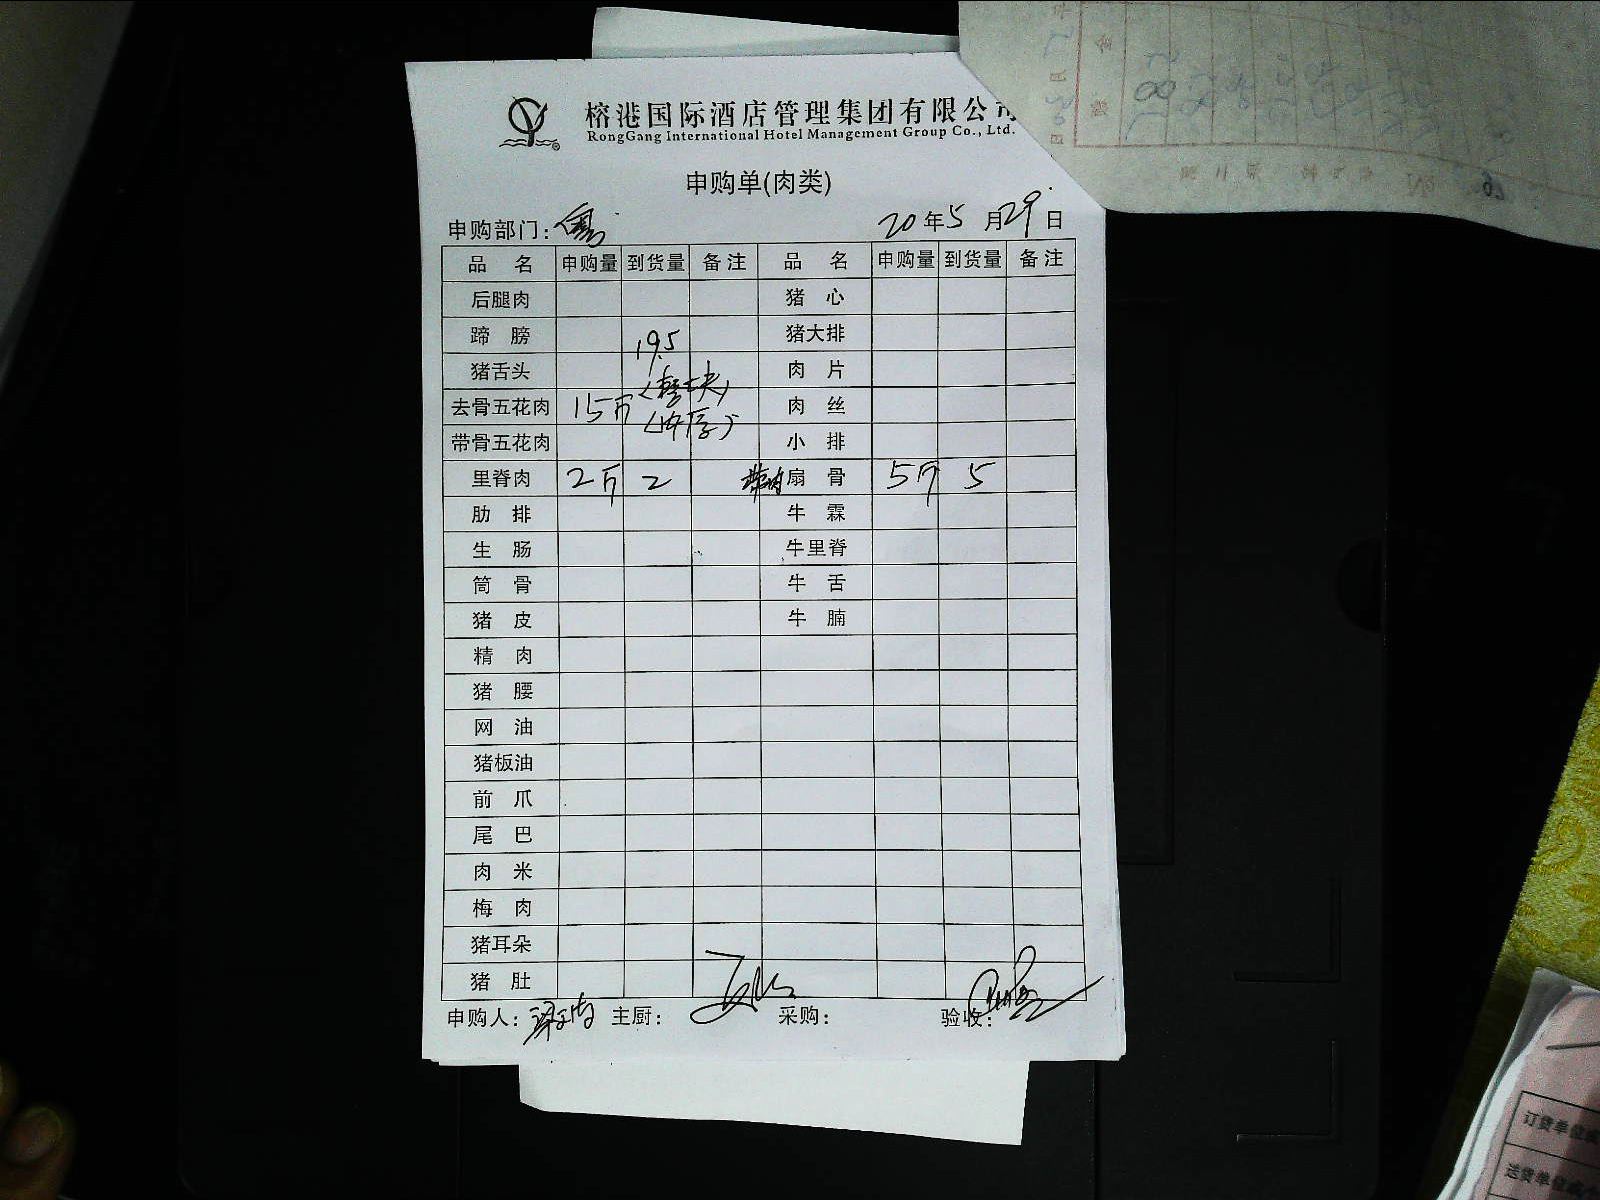 榕港国际酒店管理集团有限公司
RongGang International Hotel Management Group Co., Ltd.
申购单(肉类)
申购部门: 20年5月29日
品名 申购量 到货量 备注 品名 申购量 到货量 备注
后腿肉 猪心
蹄膀 猪大排
19.5
猪舌头 肉片
(整块)
去骨五花肉 15斤 肉丝
带骨五花肉 小排
里脊肉 2斤 2 带肉扇骨 5斤 5
肋排 牛霖
生肠 牛里脊
筒骨 牛舌
猪皮 牛腩
精肉
猪腰
网油
猪板油
前爪
尾巴
肉米
梅肉
猪耳朵
猪肚
申购人: 主厨: 采购: 验收:
订货单位
送货单位